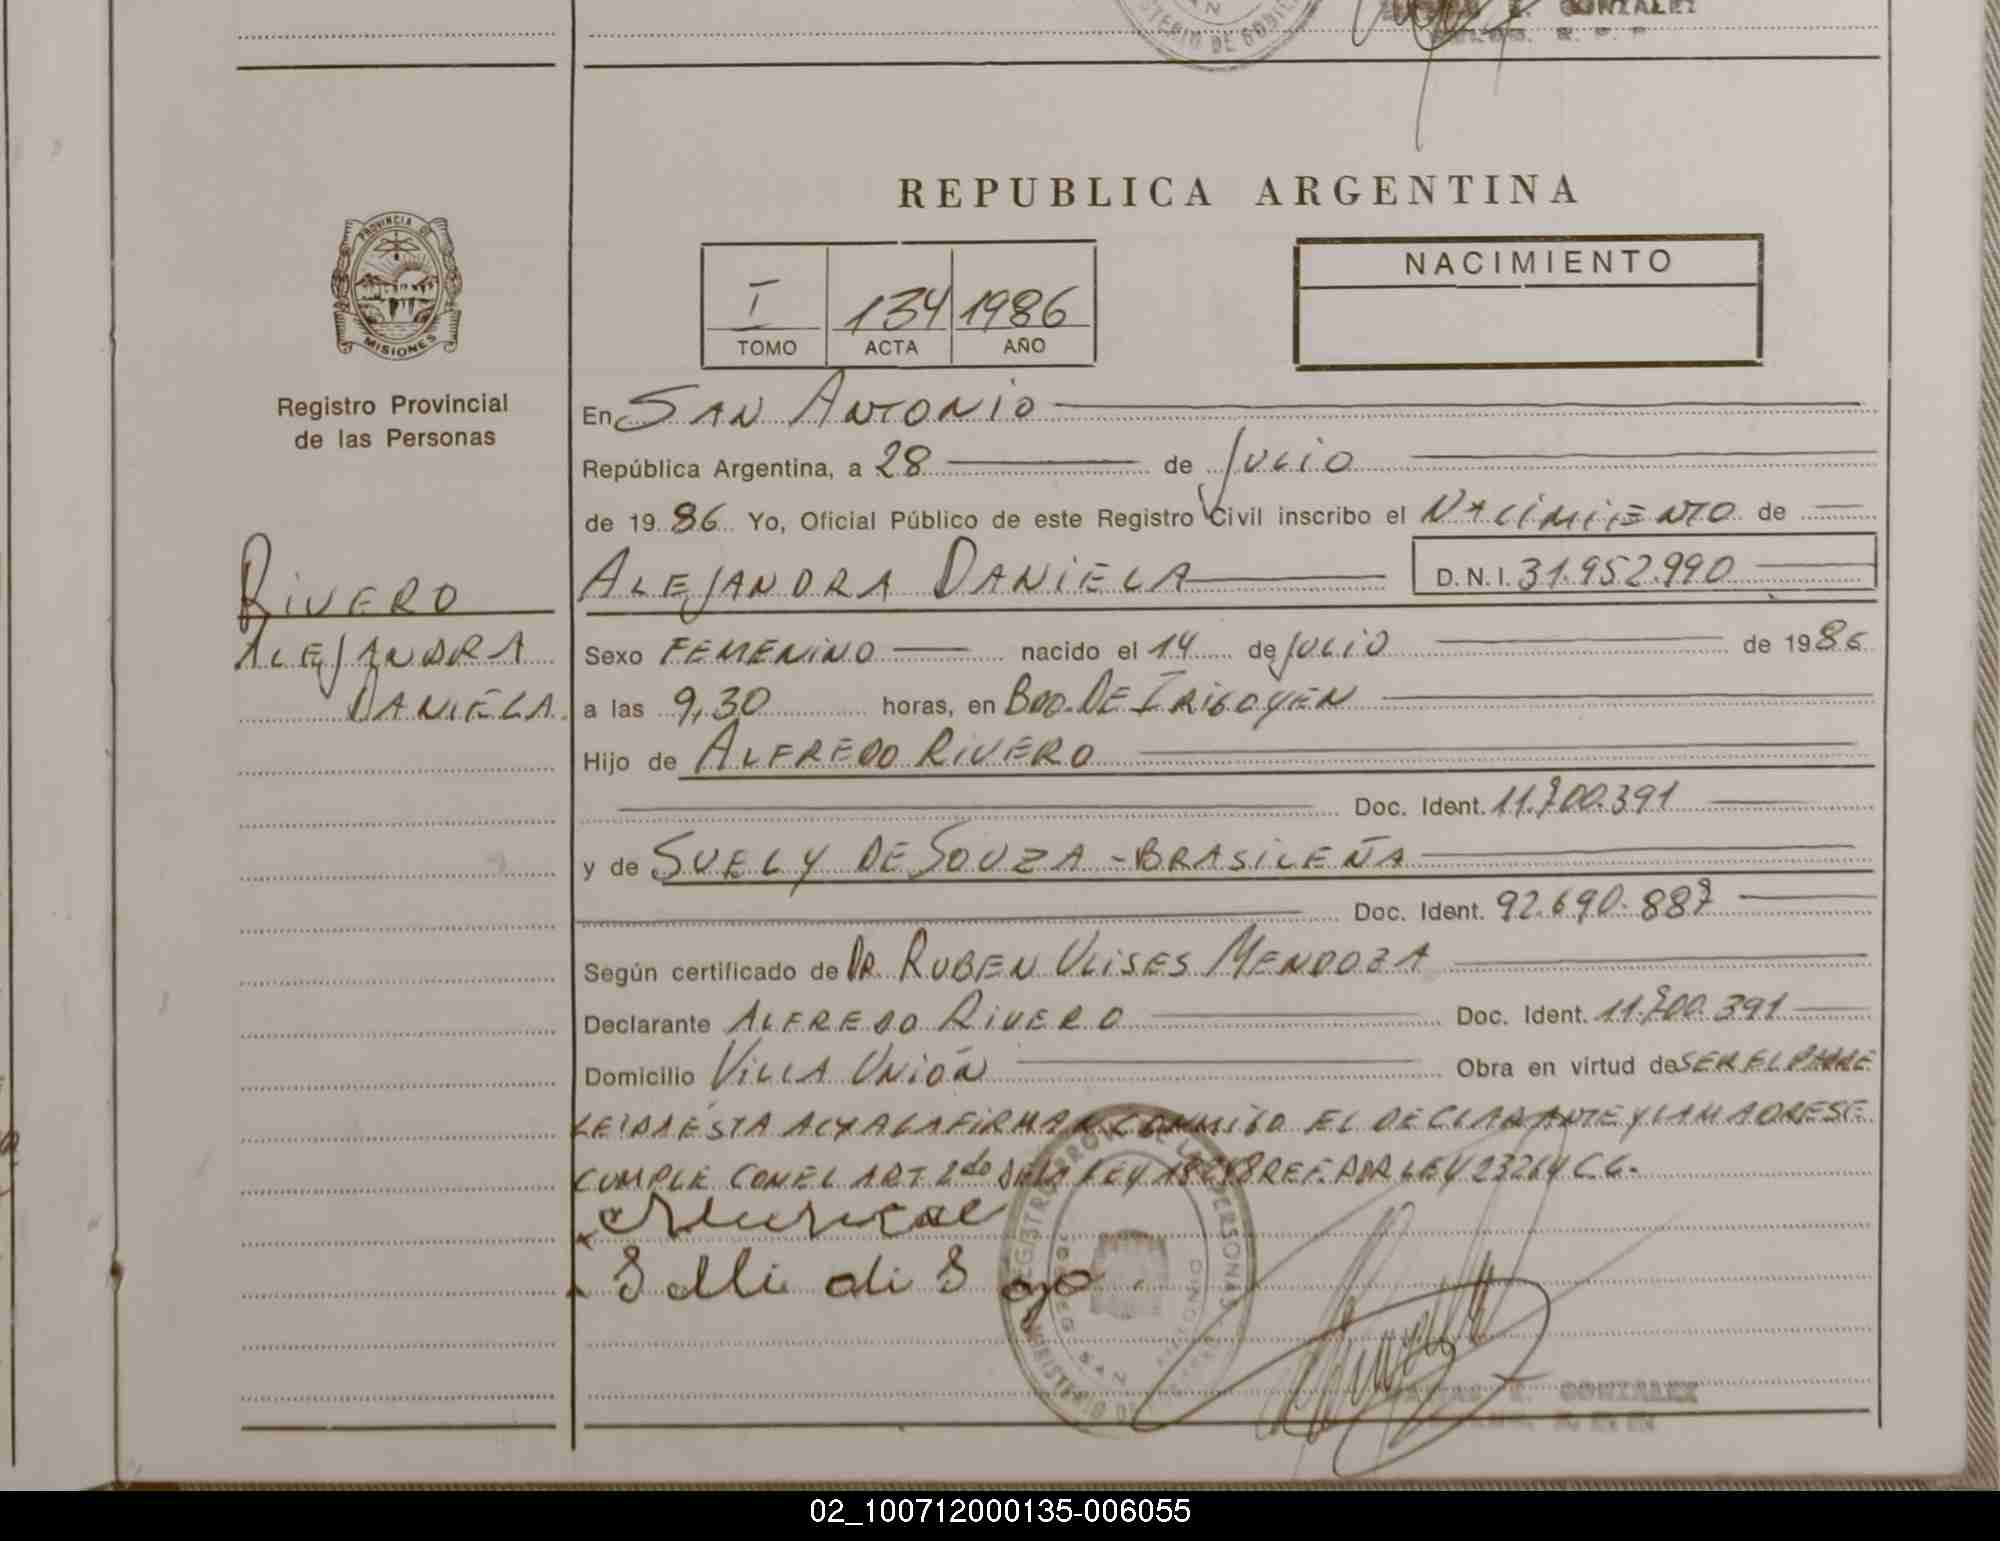 GONZALEZ
REPUBLICA ARGENTINA
PROVINCIA DE
MISIONES
Registro Provincial
de las Personas
I 134 1986
TOMO ACTA AÑO
NACIMIENTO
En SAN ANTONIO
República Argentina, a 28 de JULIO
de 19 86 Yo, Oficial Público de este Registro Civil inscribo el NACIMIENTO de
ALEJANDRA DANIELA D.N.I. 31.952.990
RIVERO
ALEJANDRA
DANIELA
Sexo FEMENINO nacido el 14 de JULIO de 1986
a las 9,30 horas, en BDO. DE IRIGOYEN
Hijo de ALFREDO RIVERO
Doc. Ident. 11.700.391
y de SUELY DE SOUZA - BRASILEÑA
Doc. Ident. 92.690.887
Según certificado de DR. RUBEN ULISES MENDOZA
Declarante ALFREDO RIVERO Doc. Ident. 11.700.391
Domicilio VILLA UNIÓN Obra en virtud de SER EL PADRE
LEIDA ÉSTA ACTA LA FIRMAN CONMIGO EL DECLARANTE Y LA MADRE SE
CUMPLE CON EL ART. 2do DE LA LEY 18248 REF. POR LEY 23264 C.C.-
REGISTRO PROV. DE LAS PERSONAS
SAN ANTONIO
MINISTERIO DE GOBIERNO
GONZALEZ
02_100712000135-006055